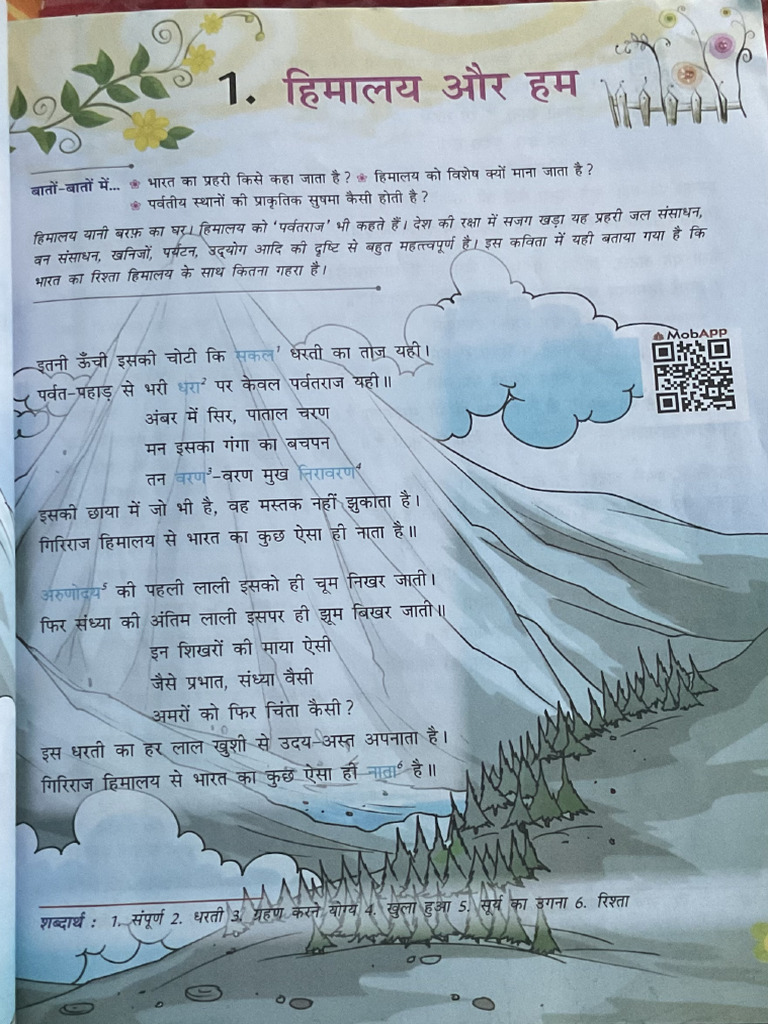 1. हिमालय और हम
बातों-बातों में... ❀ भारत का प्रहरी किसे कहा जाता है? ❀ हिमालय को विशेष क्यों माना जाता है?
❀ पर्वतीय स्थानों की प्राकृतिक सुषमा कैसी होती है?
हिमालय यानी बरफ़ का घर। हिमालय को ‘पर्वतराज’ भी कहते हैं। देश की रक्षा में सजग खड़ा यह प्रहरी जल संसाधन,
वन संसाधन, खनिजों, पर्यटन, उद्योग आदि की दृष्टि से बहुत महत्त्वपूर्ण है। इस कविता में यही बताया गया है कि
भारत का रिश्ता हिमालय के साथ कितना गहरा है।
MobApp
इतनी ऊँची इसकी चोटी कि सकल¹ धरती का ताज यही।
पर्वत-पहाड़ से भरी धरा² पर केवल पर्वतराज यही॥
अंबर में सिर, पाताल चरण
मन इसका गंगा का बचपन
तन वरण³-वरण मुख निरावरण⁴
इसकी छाया में जो भी है, वह मस्तक नहीं झुकाता है।
गिरिराज हिमालय से भारत का कुछ ऐसा ही नाता है॥
अरुणोदय⁵ की पहली लाली इसको ही चूम निखर जाती।
फिर संध्या की अंतिम लाली इसपर ही झूम बिखर जाती॥
इन शिखरों की माया ऐसी
जैसे प्रभात, संध्या वैसी
अमरों को फिर चिंता कैसी?
इस धरती का हर लाल खुशी से उदय-अस्त अपनाता है।
गिरिराज हिमालय से भारत का कुछ ऐसा ही नाता⁶ है॥
शब्दार्थ : 1. संपूर्ण 2. धरती 3. ग्रहण करने योग्य 4. खुला हुआ 5. सूर्य का उगना 6. रिश्ता